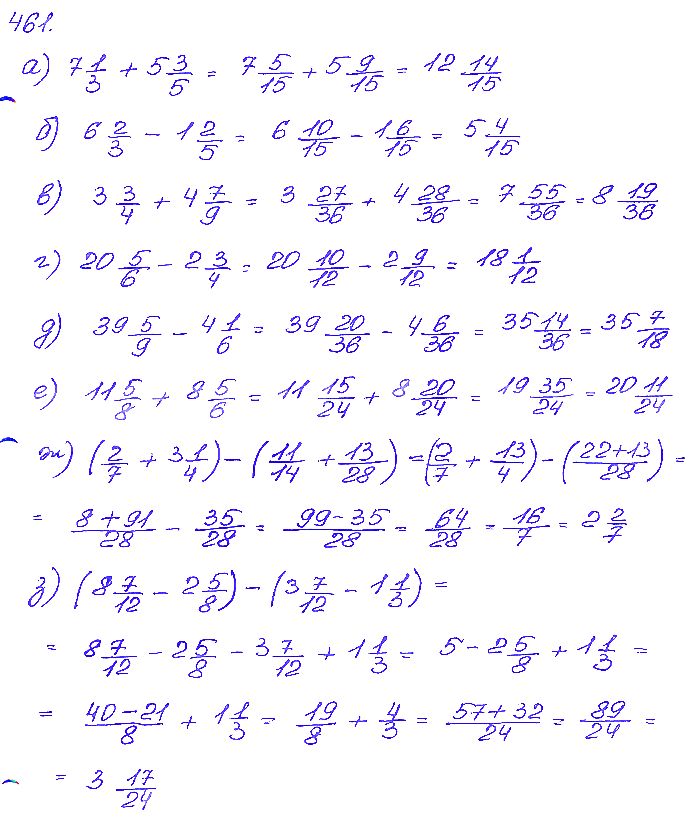 461.
а) 7 1/3 + 5 3/5 = 7 5/15 + 5 9/15 = 12 14/15
б) 6 2/3 - 1 2/5 = 6 10/15 - 1 6/15 = 5 4/15
в) 3 3/4 + 4 7/9 = 3 27/36 + 4 28/36 = 7 55/36 = 8 19/36
г) 20 5/6 - 2 3/4 = 20 10/12 - 2 9/12 = 18 1/12
д) 39 5/9 - 4 1/6 = 39 20/36 - 4 6/36 = 35 14/36 = 35 7/18
е) 11 5/8 + 8 5/6 = 11 15/24 + 8 20/24 = 19 35/24 = 20 11/24
ж) (2/7 + 3 1/4) - (11/14 + 13/28) = (2/7 + 13/4) - (22+13/28) =
= 8+91/28 - 35/28 = 99-35/28 = 64/28 = 16/7 = 2 2/7
з) (8 7/12 - 2 5/8) - (3 7/12 - 1 1/3) =
= 8 7/12 - 2 5/8 - 3 7/12 + 1 1/3 = 5 - 2 5/8 + 1 1/3 =
= 40-21/8 + 1 1/3 = 19/8 + 4/3 = 57+32/24 = 89/24 =
= 3 17/24